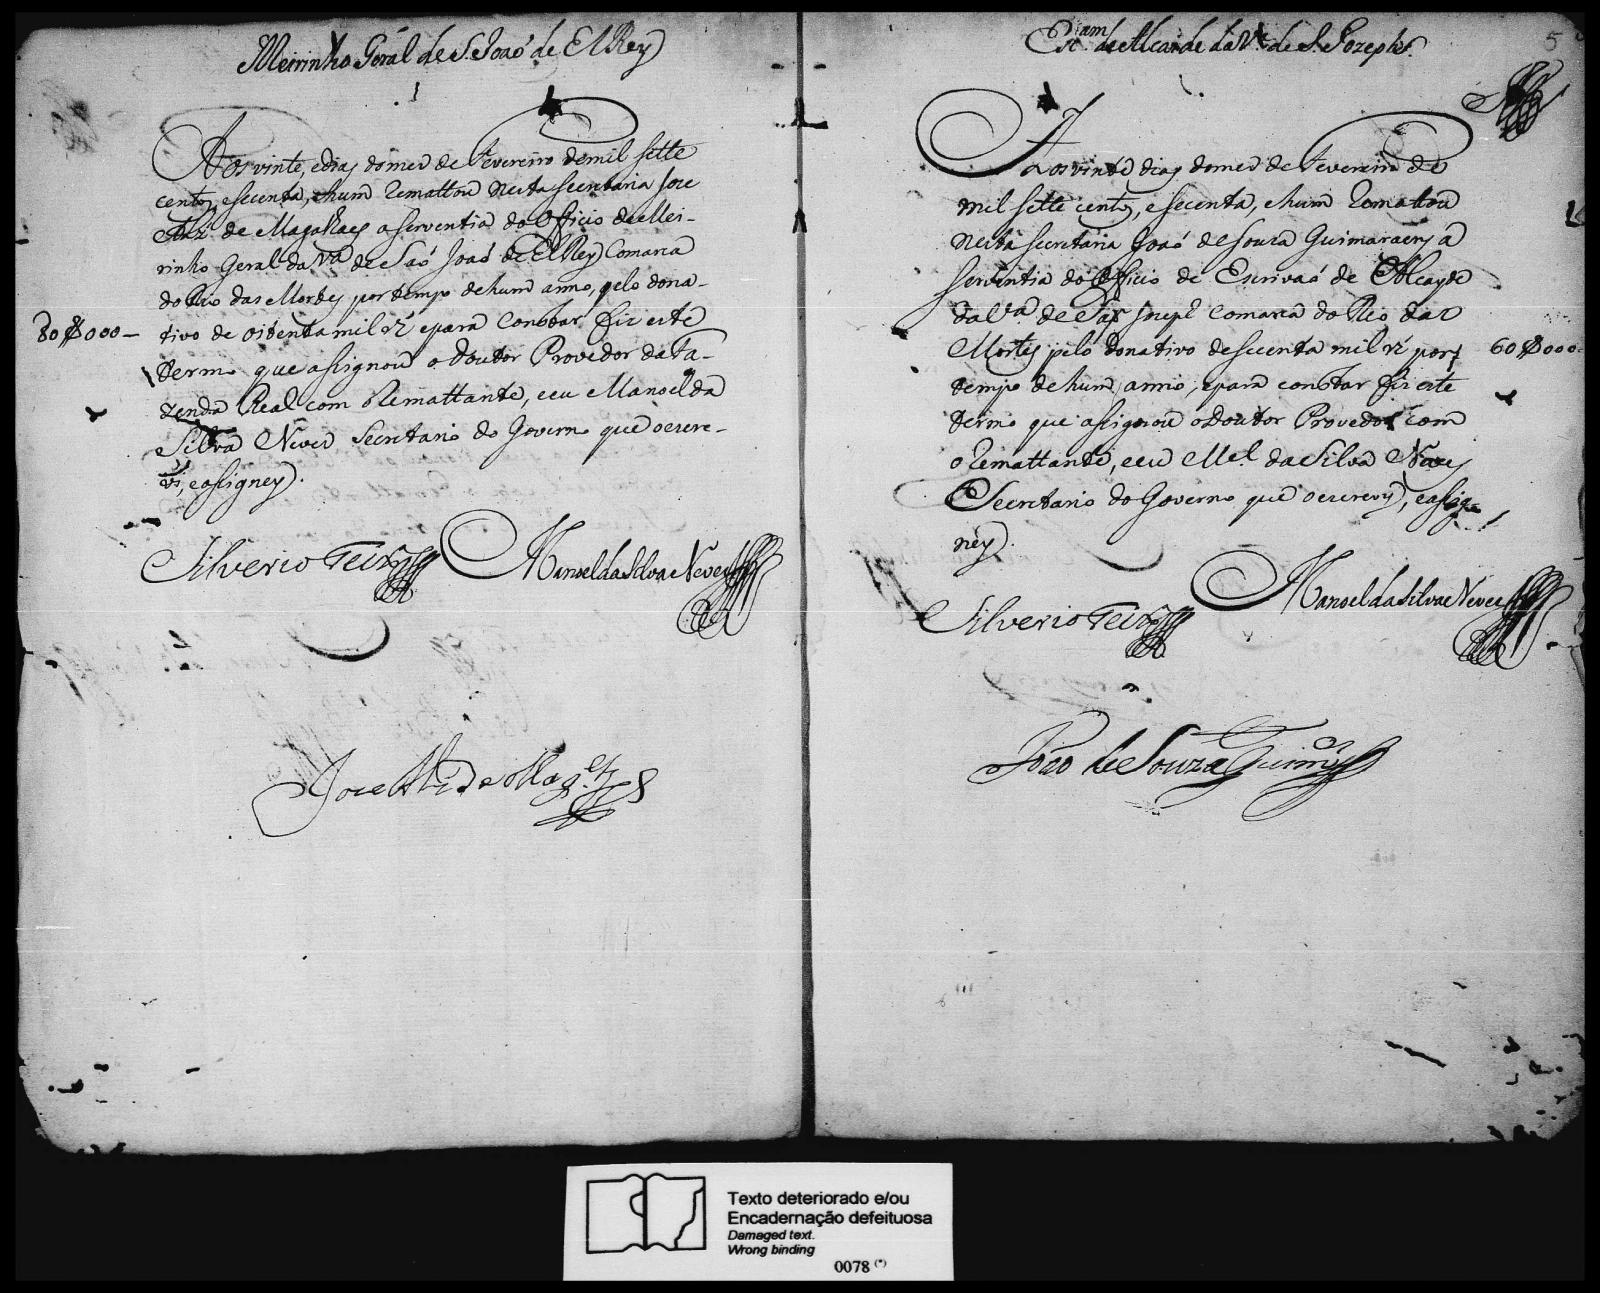 Meirinho Geral de S. Joaõ de El Rey
Aos vinte, e dias do mez de Fevereiro de mil sette
centos, e secenta, e hum Remattou nesta secretaria Joze
Alz' de Magalhaes a serventia do officio de Mei-
rinho Geral da Vª de Saõ Joaõ de El Rey Comarca
do Rio das Mortes por tempo de hum anno, pelo dona-
80$000—
tivo de oitenta mil rž e para constar fiz este
termo que assignou o Doutor Provedor da Fa-
zenda Real com o Remattante, e eu Manoel da
Silva Neves Secretario do Governo que o escre-
vi, e assigney.
Silverio Teixrª
Manoel da Silva Neves
Joze Alz de Magᵉˢ
Escam de Alcaide da Vª de S. Jozeph.
5
Aos vinte dias do mez de Fevereiro de
mil sette centos, e secenta, e hum Remattou
nesta secretaria Joaõ de Souza Guimaraens a
serventia do officio de Escrivaõ de Alcayde
da Vª de Saõ Jozeph Comarca do Rio das
Mortes pelo donativo de secenta mil rž por
60$000
tempo de hum anno, e para constar fiz este
termo que assignou o Doutor Provedor com
o Remattante, e eu Mel. da Silva Neves
Secretario do Governo que o escrevy, e assig-
ney.
Silverio Teixrª
Manoel da Silva Neves
João de Souza Guimes
Texto deteriorado e/ou
Encadernação defeituosa
Damaged text.
Wrong binding
0078 (*)